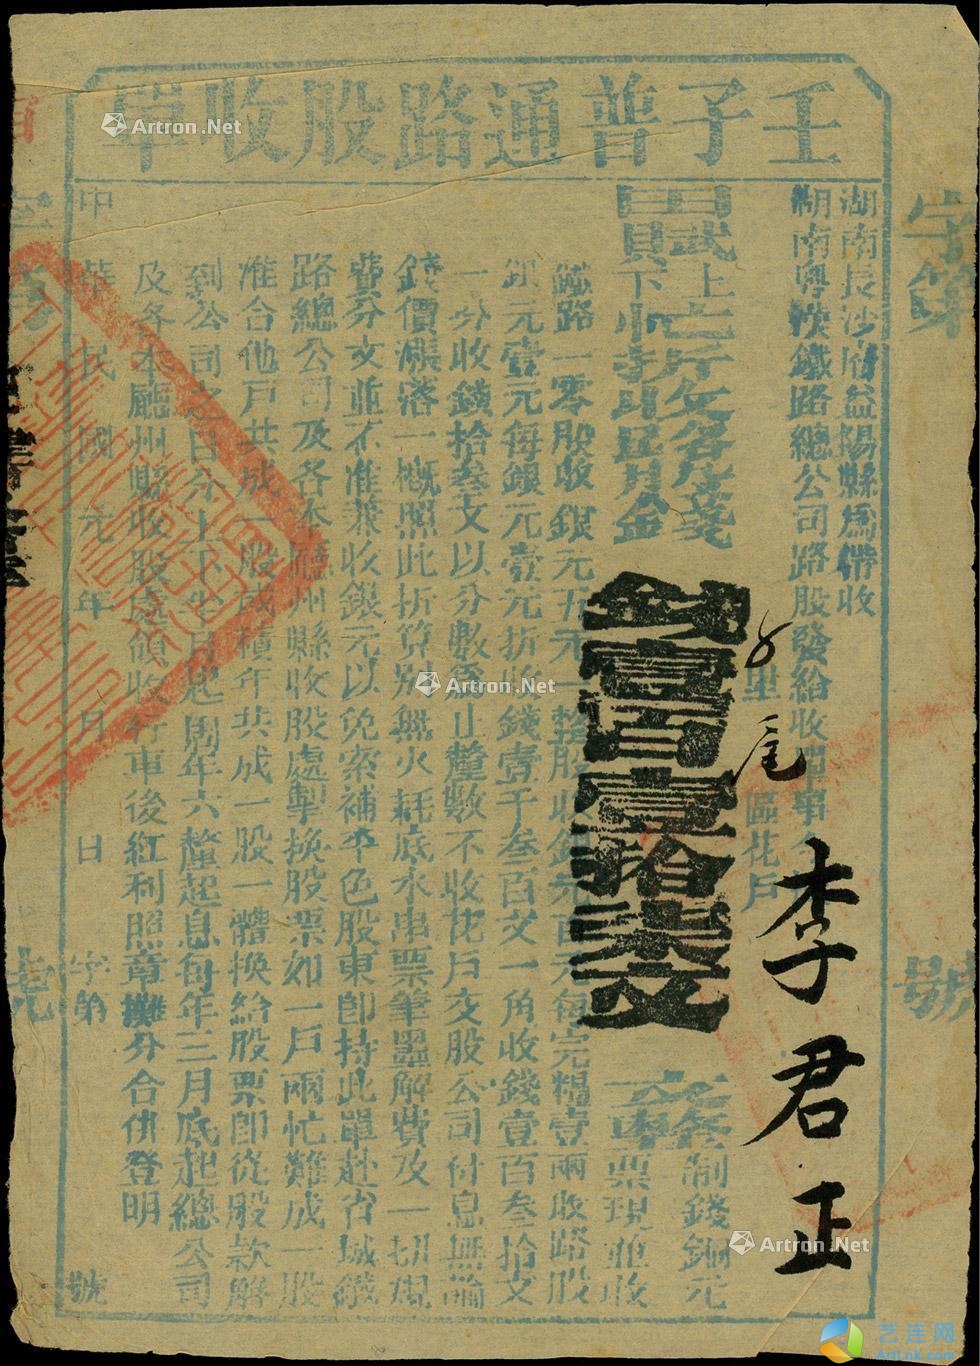 壬子普通路股收單
字第
號
湖南長沙府益陽縣為帶收
湖南粵漢鐵路總公司路股發給收單事今
里
區花戶
李君正
錢壹百壹拾柒文
制錢銅元
票現並收
鐵路一零股收銀元五元一整股收銀元百元每完糧壹兩收路股
銀元壹元每銀元壹元折收錢壹千叁百文一角收錢壹百叁拾文
一分收錢拾叁文以分數為止釐數不收花戶交股公司付息無論
錢價漲落一概照此折算別無火耗底水串票筆墨解費及一切規
費分文並不准兼收銀元以免索補平色股東即持此單赴省城鐵
路總公司及各本廳州縣收股處掣換股票如一戶兩忙難成一股
准合他戶共成一股或積年共成一股一體換給股票即從股款解
到公司之日分上下半月起周年六釐起息每年三月底起總公司
及各本廳州縣收股處領收行車後紅利照章攤分合併登明
中華民國元年 月 日 字第 號
Artron.Net
Artron.Net
Artron.Net
艺连网
ArtLnk.com